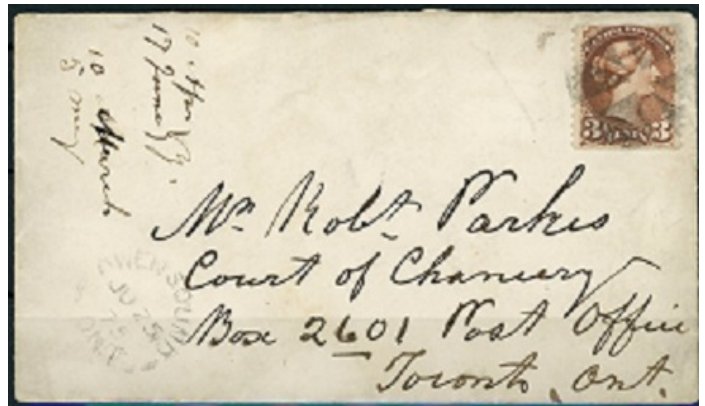 10 Apr
17 June 79.
10 March
5 may
3 CENTS 3
Mr. Robt. Parkes
Court of Chancery
Box 2601 Post Office
Toronto, Ont.
OWEN SOUND
ONT